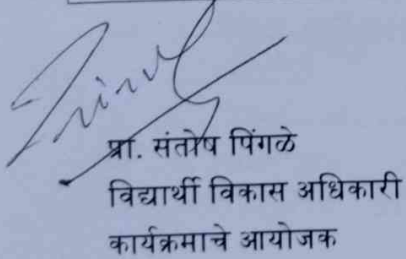 प्रा. संतोष पिंगळे
विद्यार्थी विकास अधिकारी
कार्यक्रमाचे आयोजक